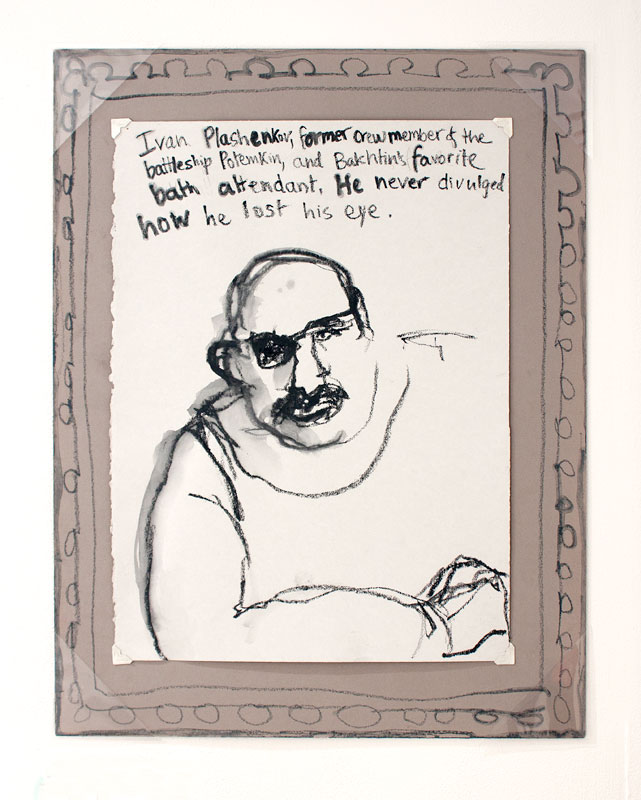 Ivan Plashenkov, former crewmember of the
battleship Potemkin, and Bakhtin's favorite
bath attendant. He never divulged
how he lost his eye.